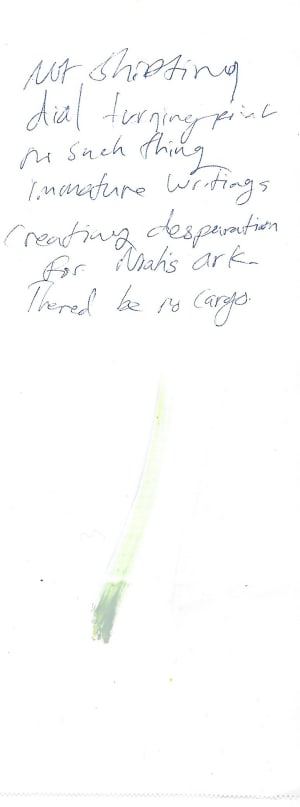 Not Shifting
dial turning point
no such thing
immature writings
Creating desperation
for Noah's ark.
Thered be no cargo.